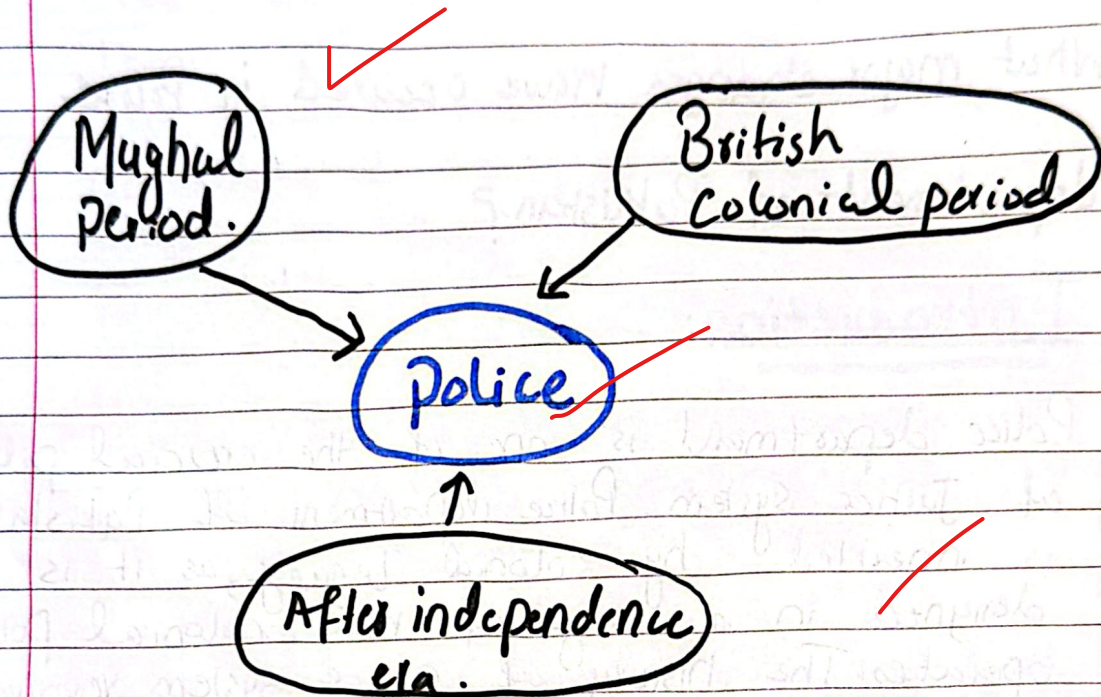 Mughal
period.
British
colonial period
police
After independence
era.